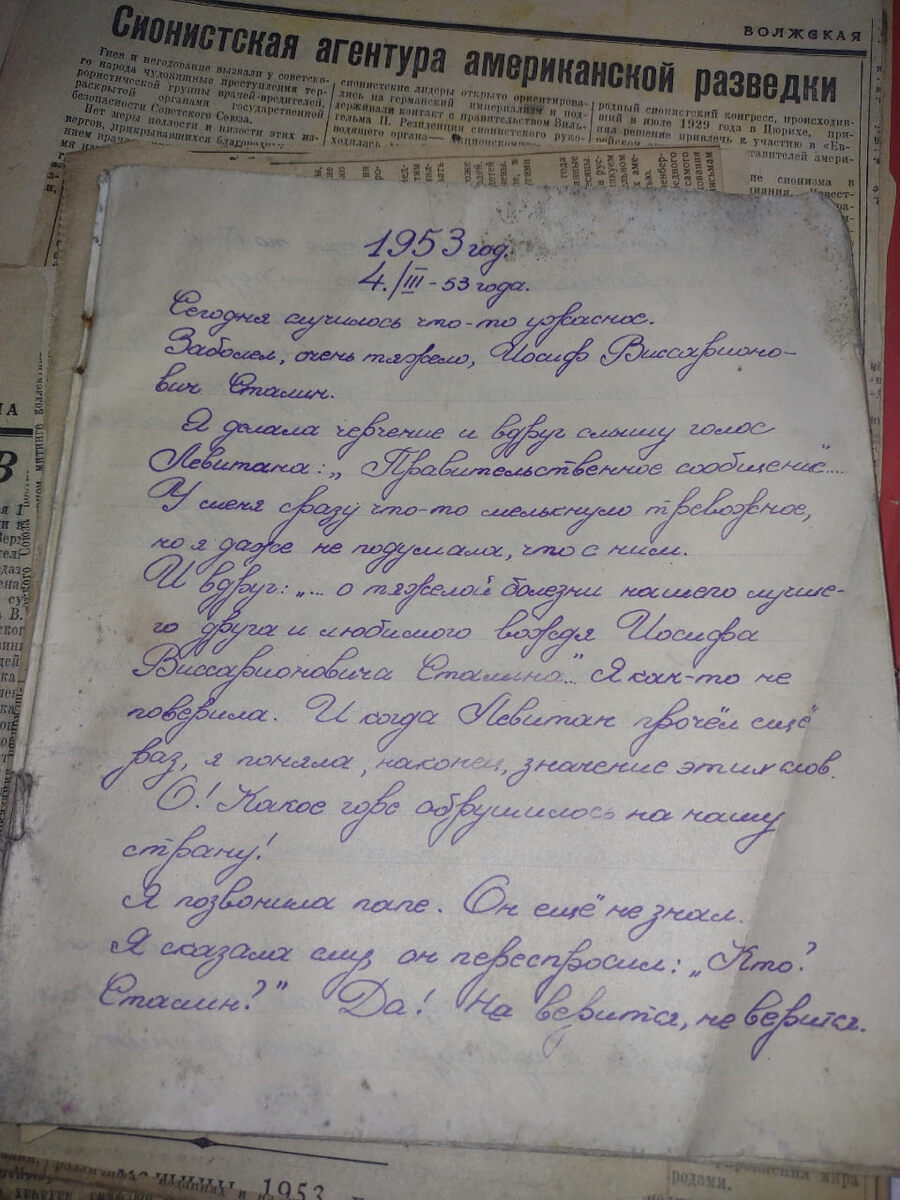 ВОЛЖСКАЯ
Сионистская агентура американской разведки
Гнев и негодование вызвали у советско-
го народа чудовищные преступления тер-
рористической группы врачей-вредителей,
раскрытой органами государственной
безопасности Советского Союза.
Нет меры подлости и низости этих из-
вергов, прикрывавшихся
сионистские лидеры открыто ориентирова-
лись на германский империализм и под-
держивали контакт с правительством Виль-
гельма II. Резиденция сионистского руко-
водящего органа—
родный сионистский конгресс, происходив-
ший в июле 1929 года в Цюрихе, при-
нял решение привлечь к участию в «Ев-
ставителей амери-
ие сионизма в
1953 год.
4./III-53 года.
Сегодня случилось что-то ужасное.
Заболел, очень тяжело, Иосиф Виссарионо-
вич Сталин.
Я делала черчение и вдруг слышу голос
Левитана: „Правительственное сообщение"....
У меня сразу что-то мелькнуло тревожное,
но я даже не подумала, что с ним.
И вдруг: „... о тяжёлой болезни нашего лучше-
го друга и любимого вождя Иосифа
Виссарионовича Сталина"... Я как-то не
поверила. И когда Левитан прочёл ещё
раз, я поняла, наконец, значение этих слов.
О! Какое горе обрушилось на нашу
страну!
Я позвонила папе. Он ещё не знал.
Я сказала ему, он переспросил: „Кто?
Сталин?" Да! Не верится, не верится.
1953